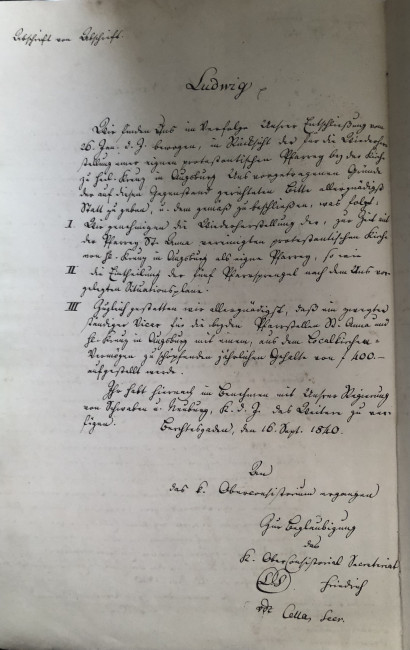 Abschrift von Abschrift.
Ludwig
Wir finden Uns im Verfolge Unsrer Entschließung vom
26. Jan. d. J. bewogen, in Rücksicht der für die Wiederher-
stellung einer eignen protestantischen Pfarrey bey der Kirche
zu heil. Kreuz in Augsburg Uns vorgetragenen Gründe
der auf diesen Gegenstand gerichteten Bitte allergnädigst
Statt zu geben, u. dem gemäß zu beschließen, was folgt:
I. Wir genehmigen die Wiederherstellung der, zur Zeit mit
der Pfarrey St. Anna vereinigten protestantischen Kirche
von hl. Kreuz in Augsburg als eigne Pfarrey, so wie
II die Eintheilung der fünf Pfarrsprengel nach dem Uns vor-
gelegten Situationsplane.
III Zugleich gestatten wir allergnädigst, daß ein
ständiger Vicar für die beyden Pfarrstellen St. Anna und
hl. Kreuz in Augsburg mit einem, aus dem Localkirchen-
Vermögen zu schöpfenden jährlichen Gehalte von f 400.–
aufgestellt werde.
Ihr habt hiernach im Benehmen mit Unsrer Regierung
von Schwaben u. Neuburg, K. d. J. das Weitere zu ver-
fügen. Berchtesgaden, den 16. Sept. 1840.
An
das k. Oberconsistorium ergangen
Zur Beglaubigung
das
K. Oberconsistorial Secretariat
(LS). Friedrich
vdt Cella, Secr.